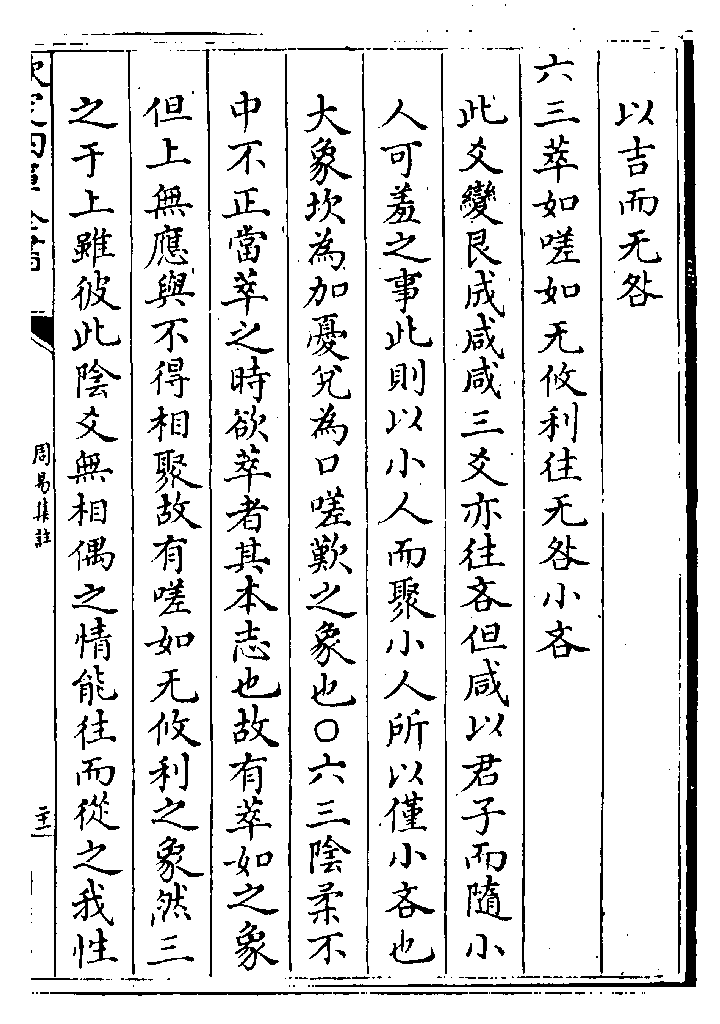 以吉而无咎
六三萃如嗟如无攸利往无咎小吝
此爻變艮成咸咸三爻亦往吝但咸以君子而隨小
人可羞之事此則以小人而聚小人所以僅小吝也
大象坎為加憂兌為口嗟歎之象也○六三陰柔不
中不正當萃之時欲萃者其本志也故有萃如之象
但上無應與不得相聚故有嗟如无攸利之象然三
之于上雖彼此陰爻無相偶之情能往而從之我性
周易集註